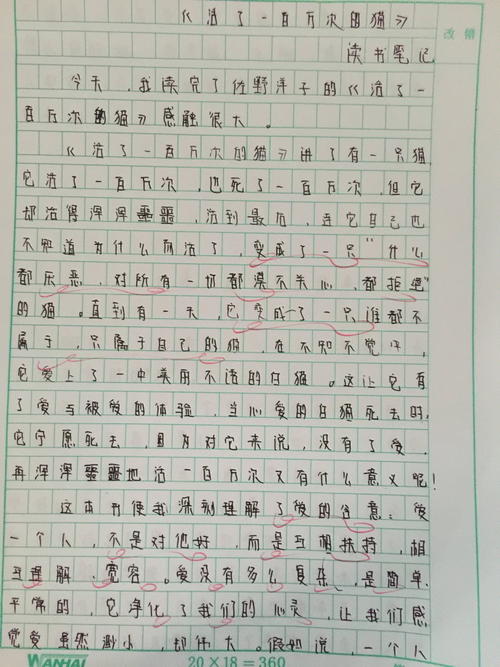 《活了一百万次的猫》
改错
读书笔记
今天，我读完了佐野洋子的《活了一
百万次的猫》感触很大。
《活了一百万次的猫》讲了有一只猫
它活了一百万次，也死了一百万次，但它
却活得浑浑噩噩，活到最后，连它自己也
不知道为什么而活了，变成了一只“什么
都厌恶，对所有一切都漠不关心，都拒绝”
的猫。直到有一天，它变成了一只谁都不
属于，只属于自己的猫，在不知不觉中，
它爱上了一中美丽不活的白猫。这让它有
了爱与被爱的体验，当心爱的白猫死去时，
它宁愿死去，因为对它来说，没有了爱，
再浑浑噩噩地活一百万次又有什么意义呢！
这本书使我深刻理解了爱的含意：爱
一个人，不是对他好，而是互相扶持，相
互理解、宽容。爱没有多么复杂，是简单、
平常的，它净化了我们的心灵，让我们感
觉爱虽然渺小，却伟大。假如说，一个人
WANHAI
20×18=360